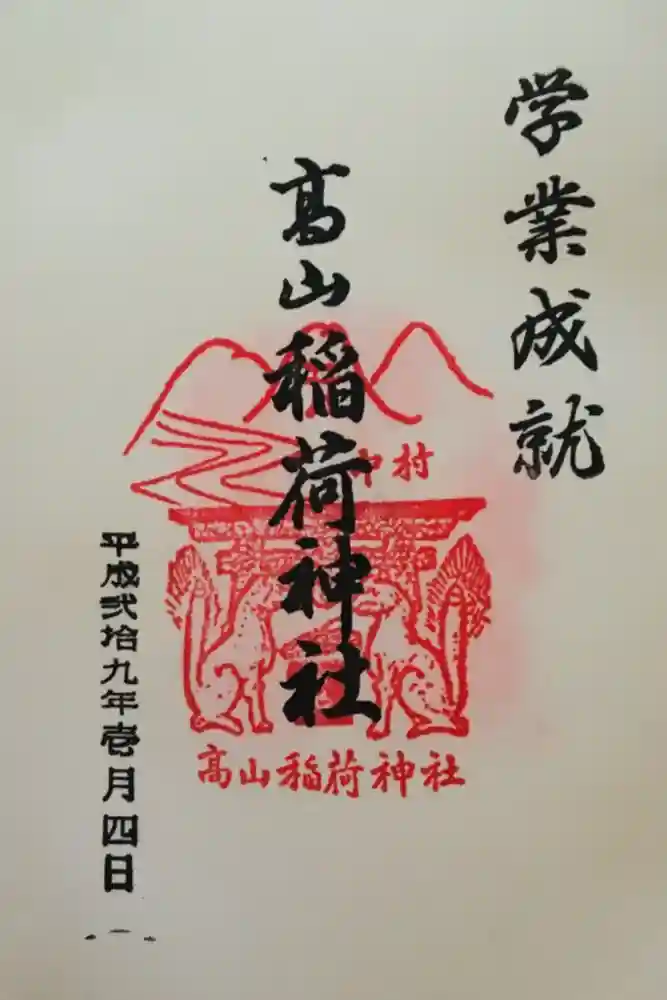 学業成就
髙山稲荷神社
中村
髙山稲荷神社
平成弐拾九年壱月四日